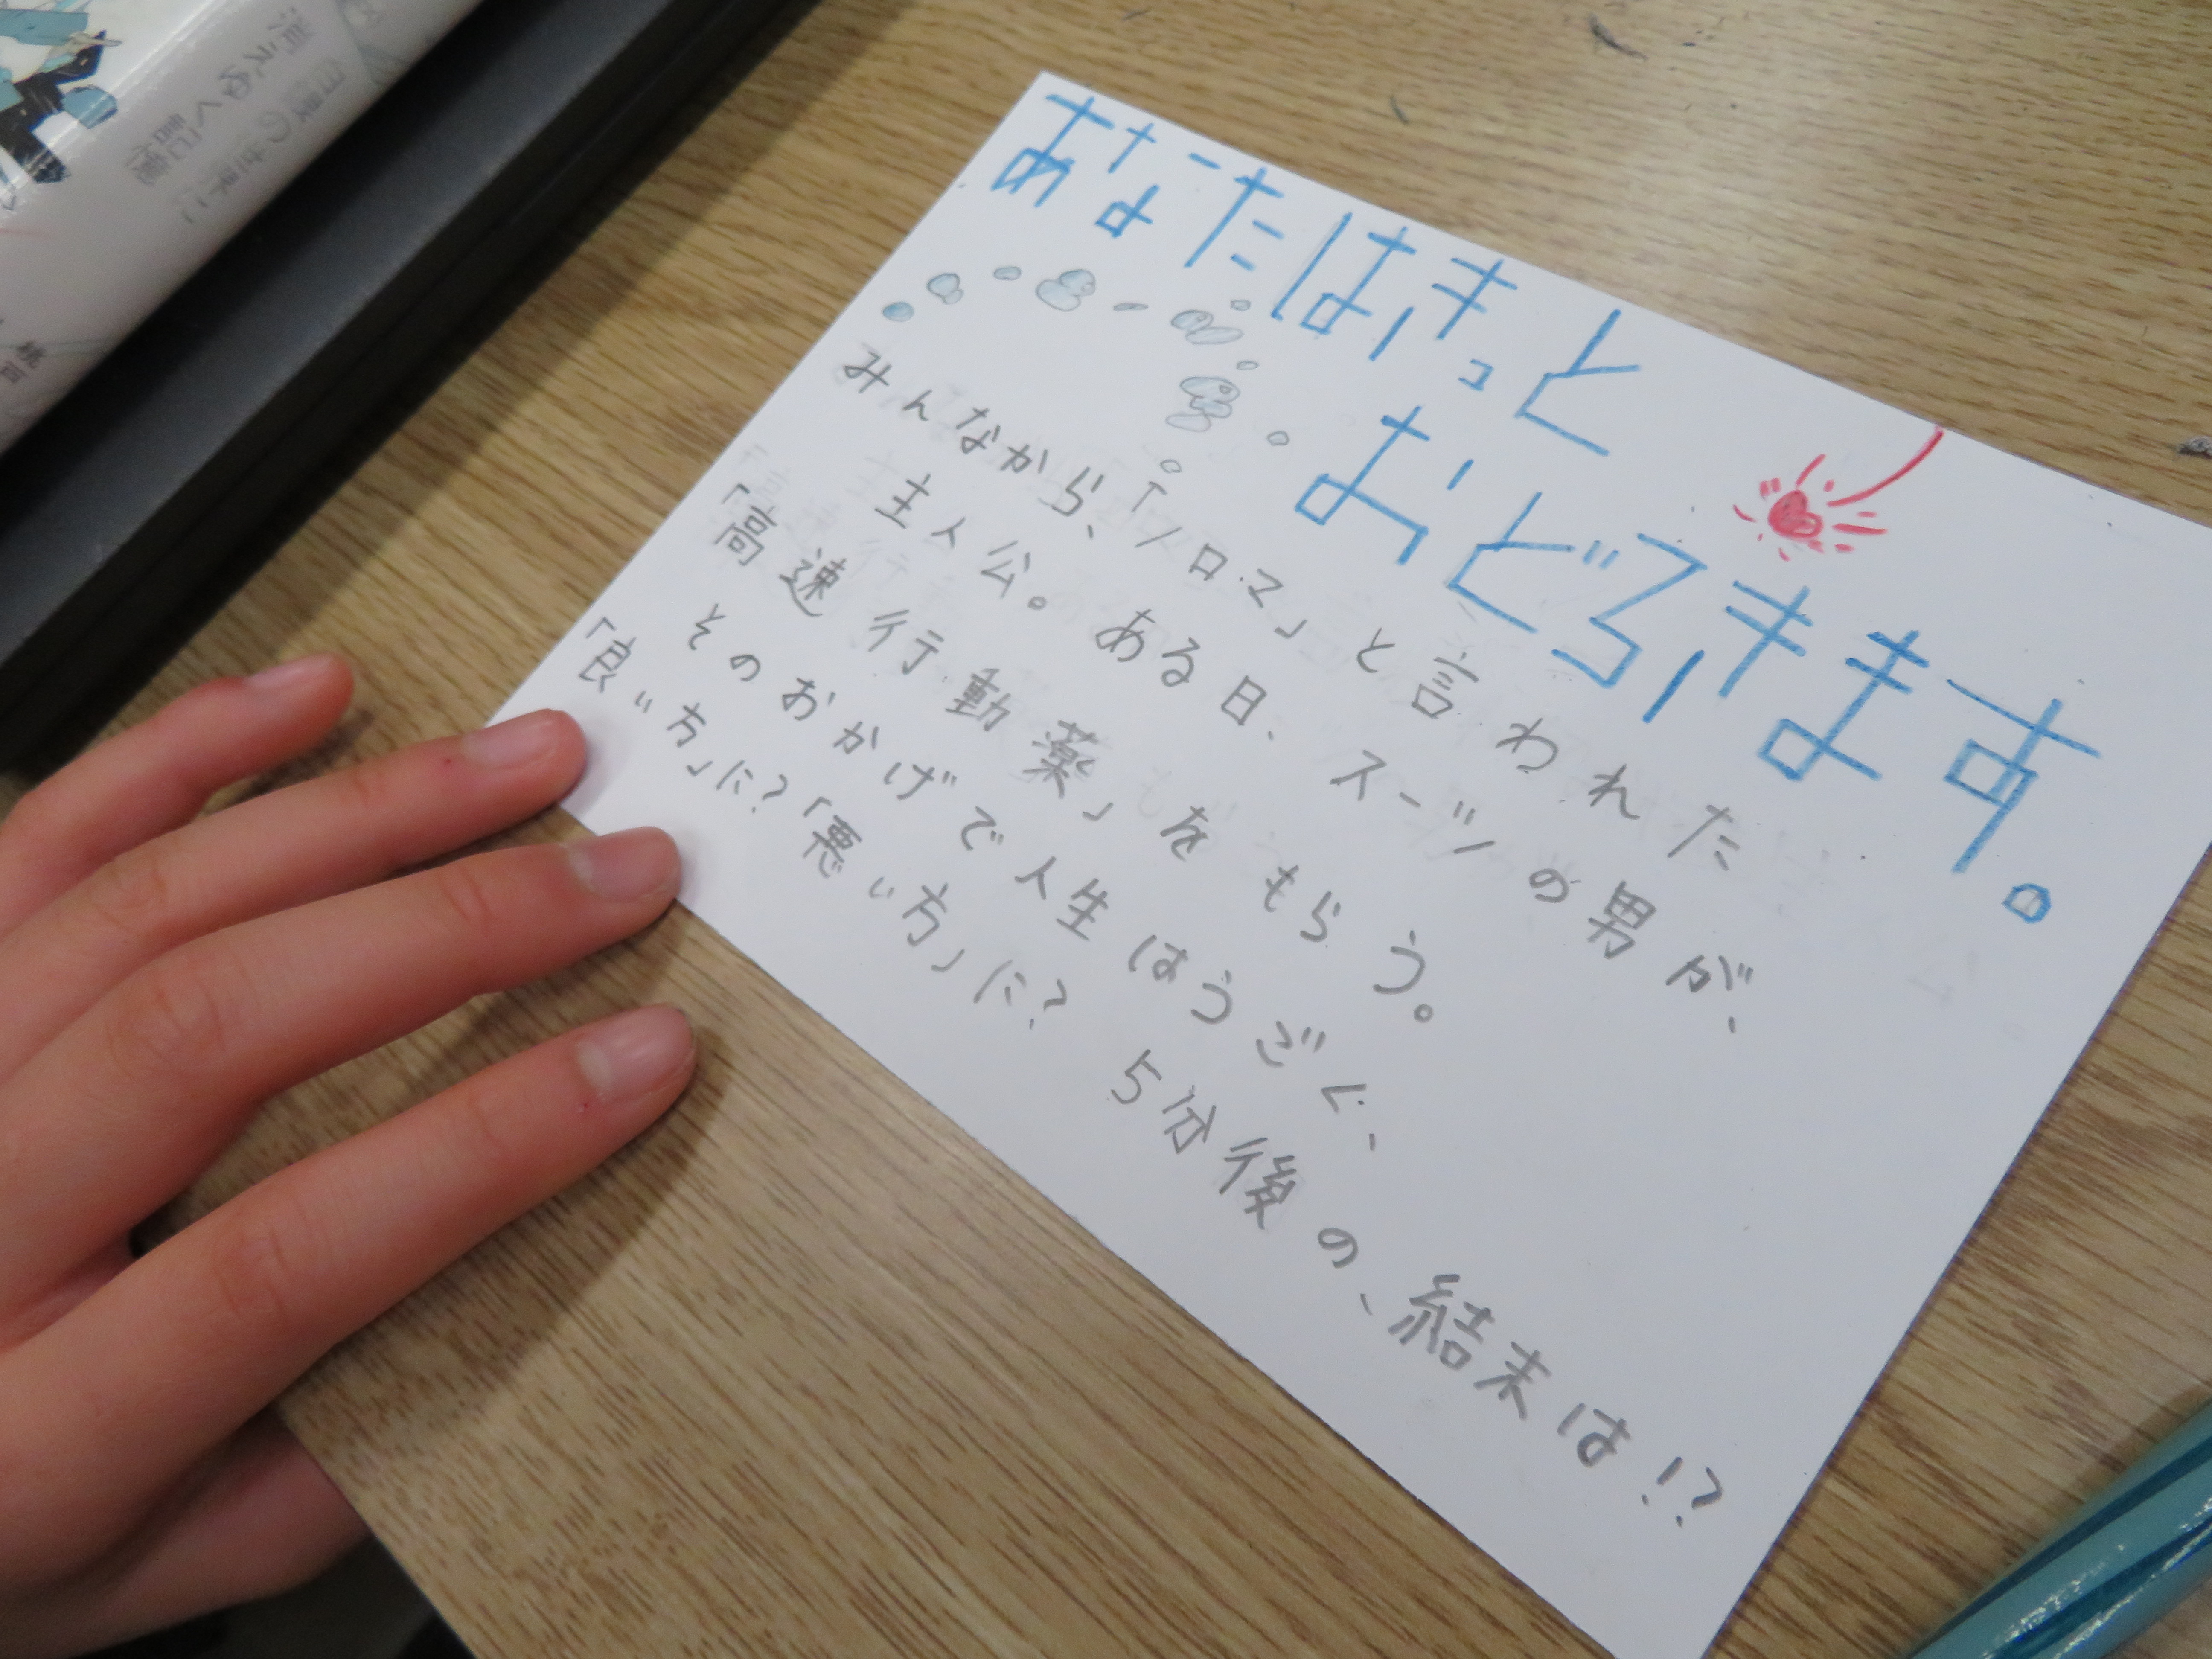 あなたはきっと
おどろきます。
みんなから、「ノロマ」と言われた
主人公。ある日、スーツの男が、
「高速行動薬」をもらう。
そのおかげで人生はうごく、
「良い方」に?「悪い方」に? 5分後の、結末は!?